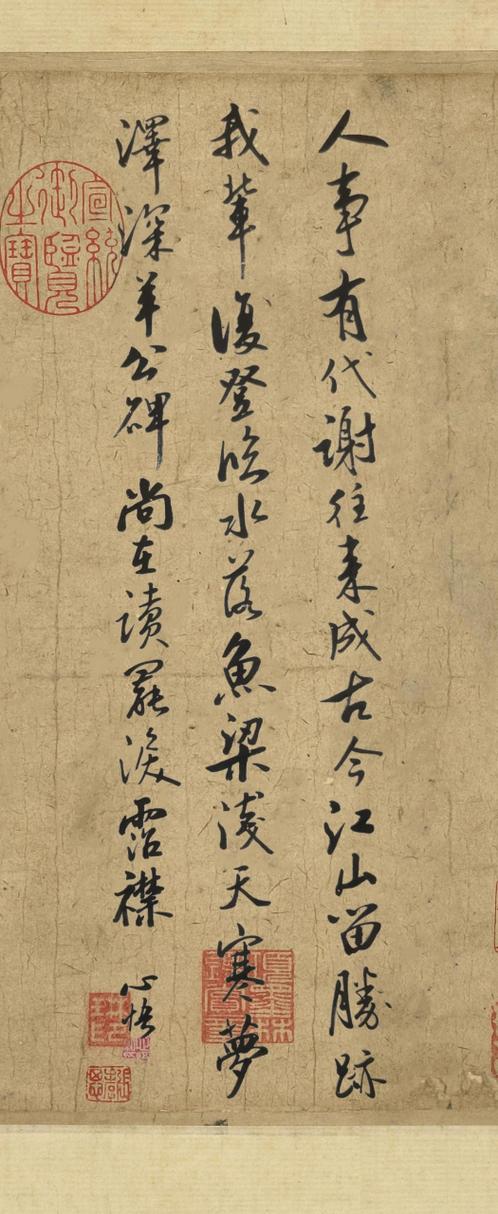 人事有代謝往來成古今江山留勝跡
我輩復登臨水落魚梁淺天寒夢
澤深羊公碑尚在讀罷淚霑襟
心悟
宣統御覽之寶